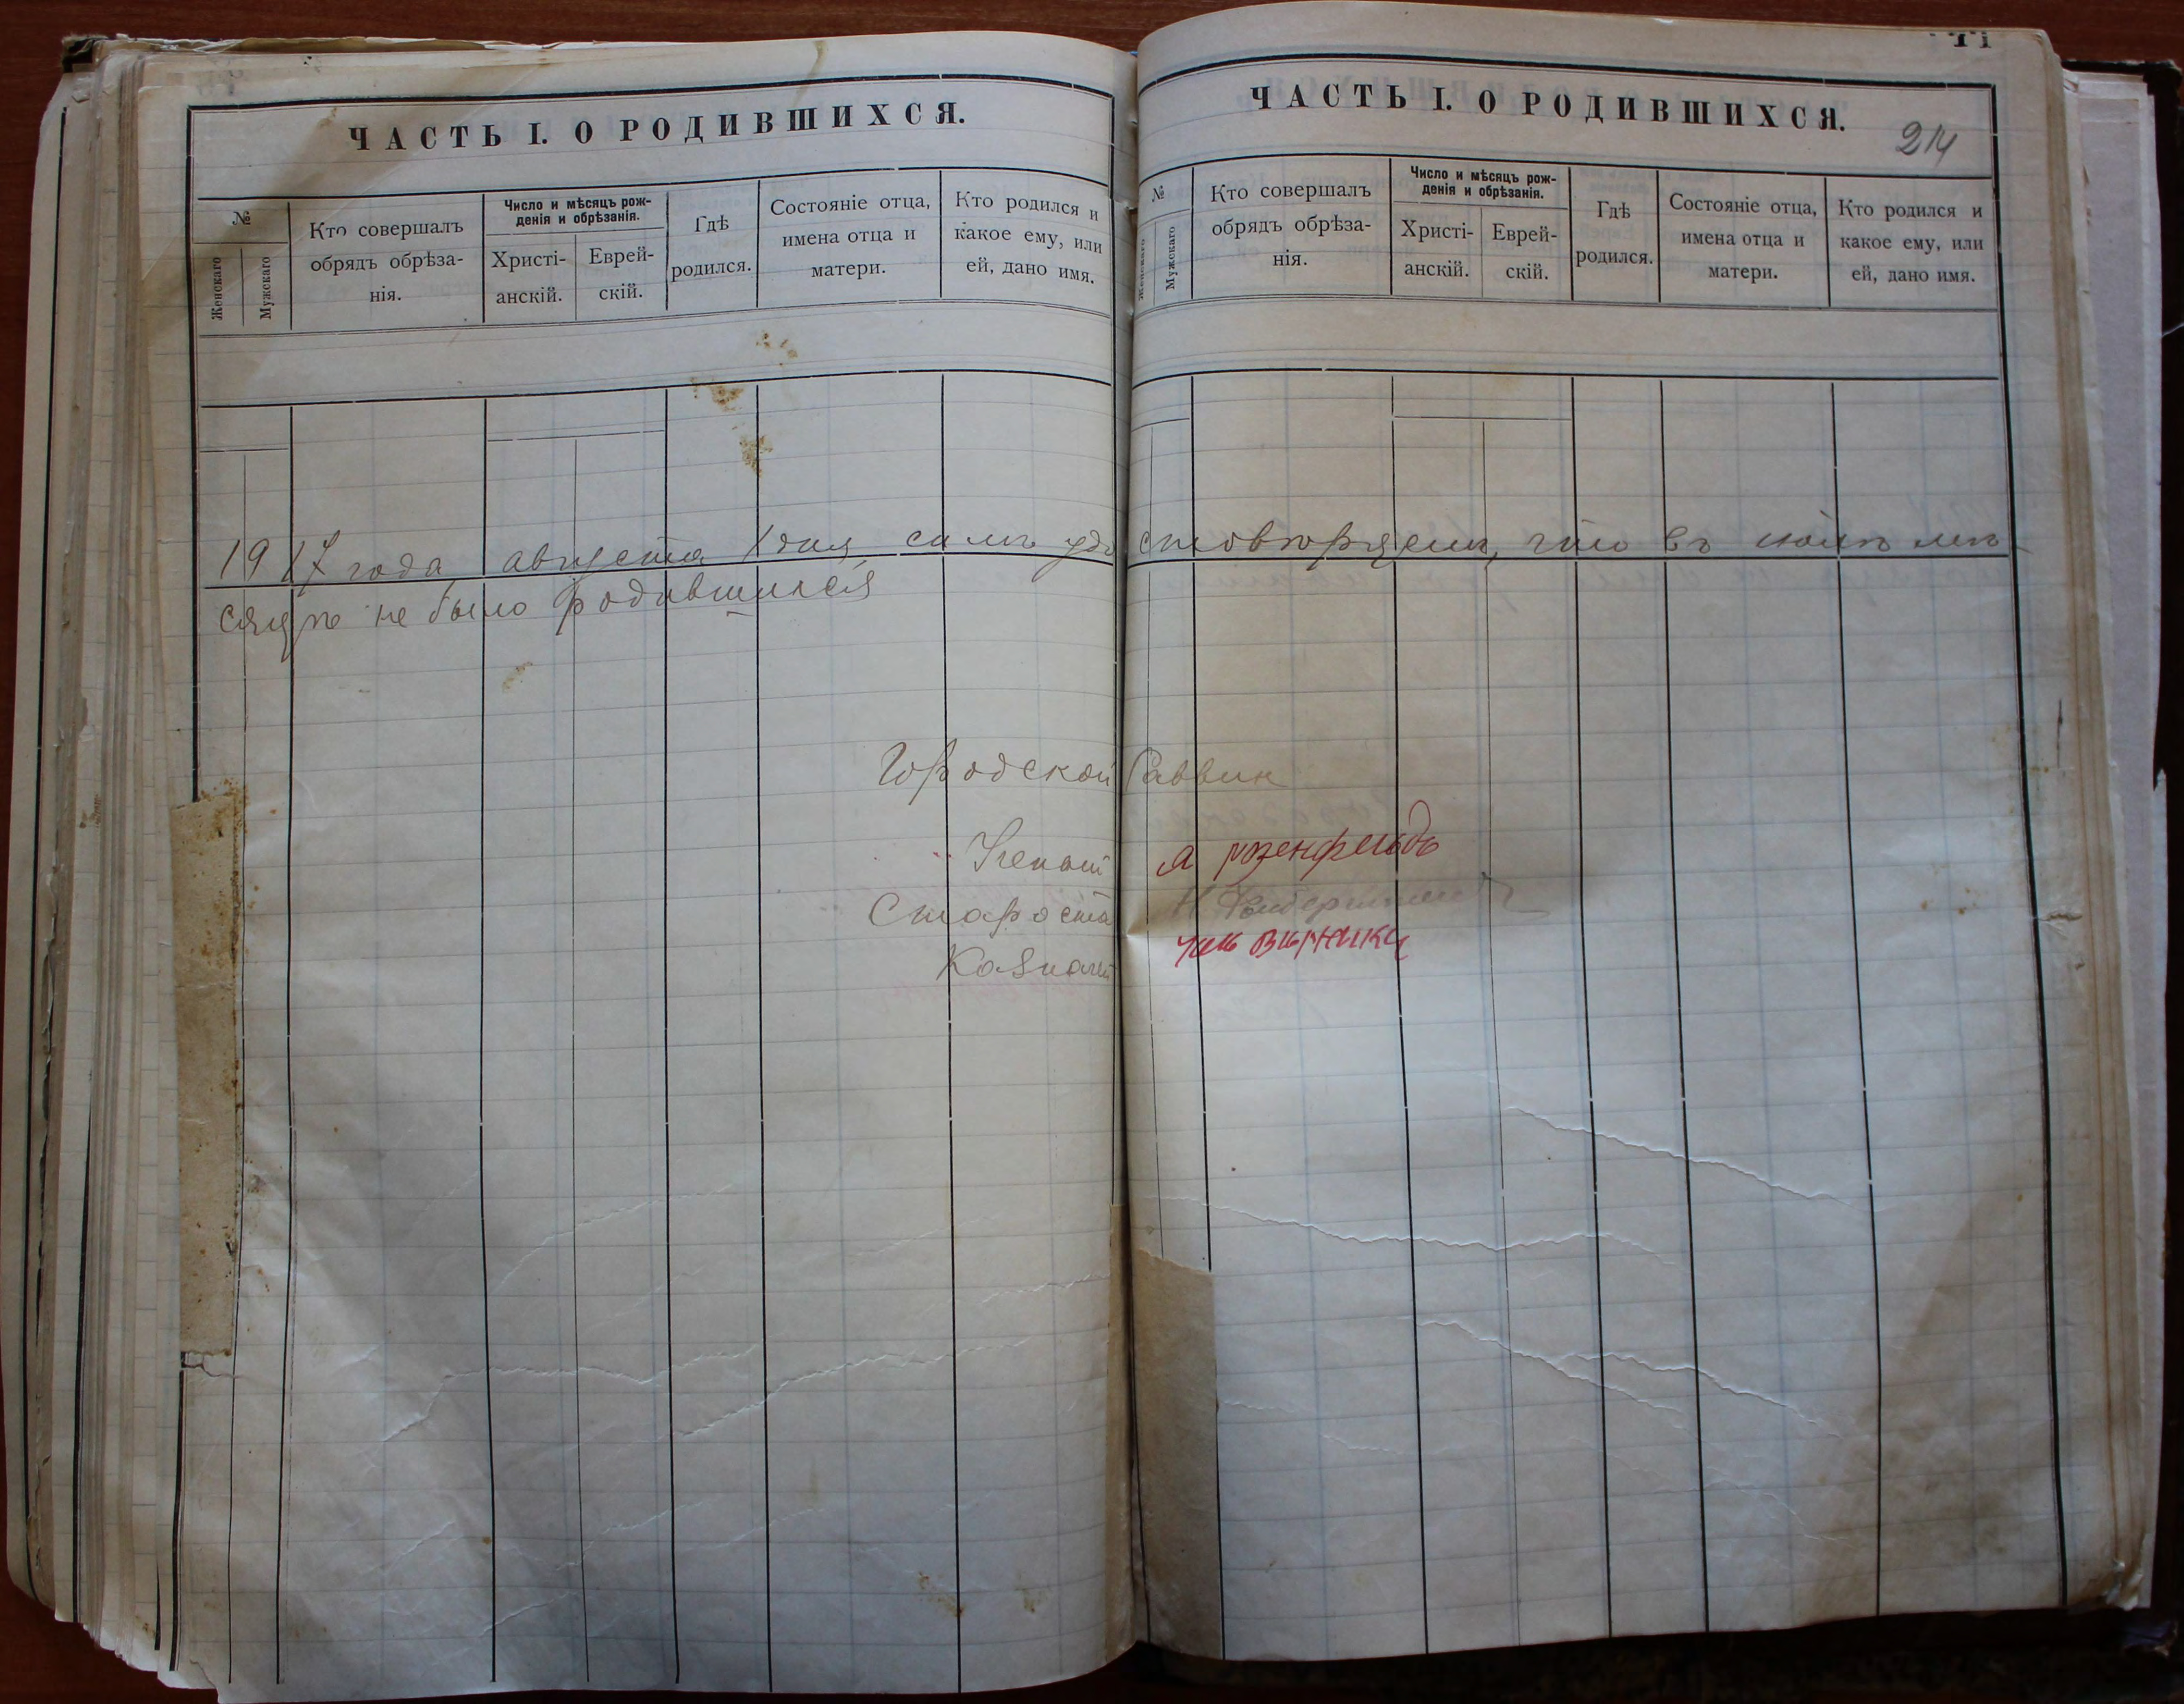 ЧАСТЬ I. О РОДИВШИХСЯ.
№
Женскаго
Мужскаго
Кто совершалъ
обрядъ обрѣза-
нія.
Число и мѣсяцъ рож-
денія и обрѣзанія.
Христі-
анскій.
Еврей-
скій.
Гдѣ
родился.
Состояніе отца,
имена отца и
матери.
Кто родился и
какое ему, или
ей, дано имя.
ЧАСТЬ I. О РОДИВШИХСЯ.
214
№
Женскаго
Мужскаго
Кто совершалъ
обрядъ обрѣза-
нія.
Число и мѣсяцъ рож-
денія и обрѣзанія.
Христі-
анскій.
Еврей-
скій.
Гдѣ
родился.
Состояніе отца,
имена отца и
матери.
Кто родился и
какое ему, или
ей, дано имя.
1917 года августа 1 дня симъ удостовѣряемъ, что въ іюлѣ мѣ-
сяцѣ не было родившихся
Городской Раввин
Ученый А розенфельдъ
Староста
Казначей